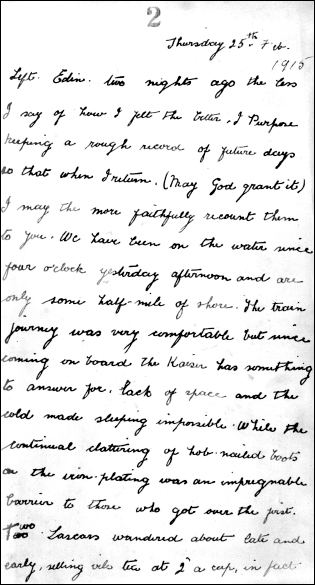 2
Thursday 25th Feb.
1915
Left. Edin. two nights ago the less
I say of how I felt the better, I Purpose
keeping a rough record of future days
so that when I return. (May God grant it)
I may the more faithfully recount them
to you. We have been on the water since
four o'clock yesterday afternoon and are
only some half-mile of shore. The train
journey was very comfortable but since
coming on board the Kaiser has something
to answer for. Lack of space and the
cold made sleeping impossible. While the
continual clattering of hob-nailed boots
on the iron-plating was an impregnable
barrier to those who got over the first.
Two Lascars wandered about late and
early, selling vile tea at 2d a cup, in fact